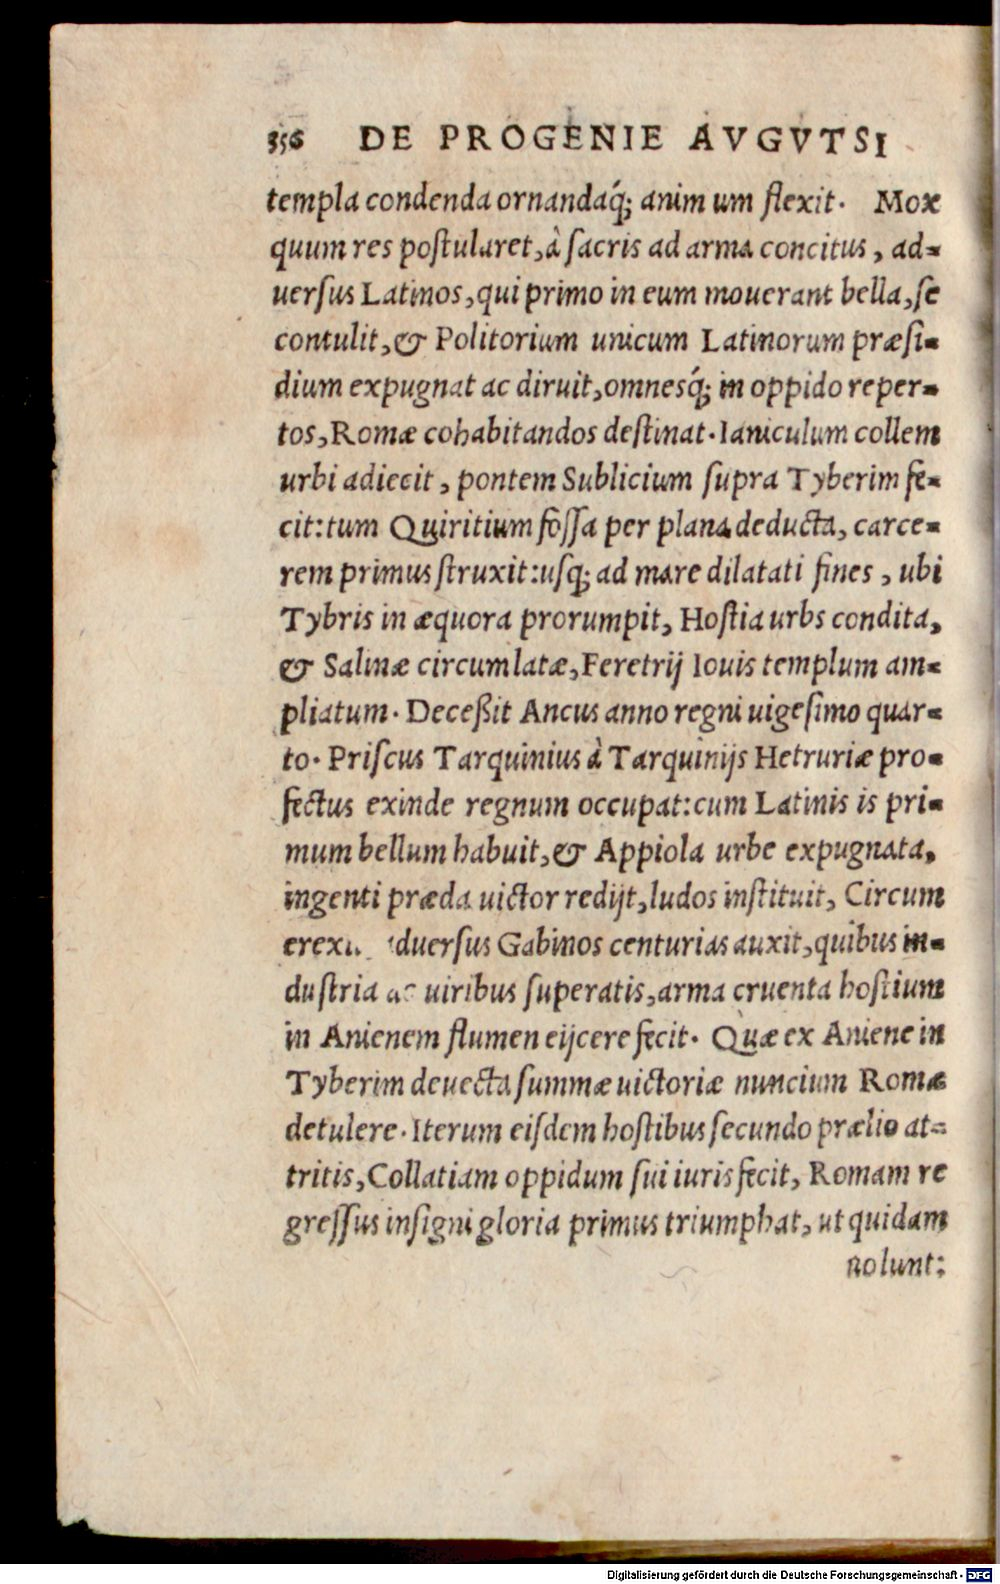 356 DE PROGENIE AVGVTSI
templa condenda ornandaq́; anim um flexit. Mox
quum res postularet, à sacris ad arma concitus, ad-
uersus Latinos, qui primo in eum mouerant bella, se
contulit, & Politorium unicum Latinorum præsi-
dium expugnat ac diruit, omnesq́; in oppido reper-
tos, Romæ cohabitandos destinat. Ianiculum collem
urbi adiecit, pontem Sublicium supra Tyberim fe-
cit: tum Quiritium fossa per plana deducta, carce-
rem primus struxit: usq; ad mare dilatati fines, ubi
Tybris in æquora prorumpit, Hostia urbs condita,
& Salinæ circumlatæ, Feretrij Iouis templum am-
pliatum. Deceßit Ancus anno regni uigesimo quar-
to. Priscus Tarquinius à Tarquinijs Hetruriæ pro-
fectus exinde regnum occupat: cum Latinis is pri-
mum bellum habuit, & Appiola urbe expugnata,
ingenti præda uictor redijt, ludos instituit, Circum
duersus Gabinos centurias auxit, quibus in-
dustria ac uiribus superatis, arma cruenta hostium
in Anienem flumen eijcere fecit. Quæ ex Aniene in
Tyberim deuecta summæ uictoriæ nuncium Romæ
detulere. Iterum eisdem hostibus secundo prælio at-
tritis, Collatiam oppidum sui iuris fecit, Romam re
gressus insigni gloria primus triumphat, ut quidam
uolunt:
Digitalisierung gefördert durch die Deutsche Forschungsgemeinschaft - DFG